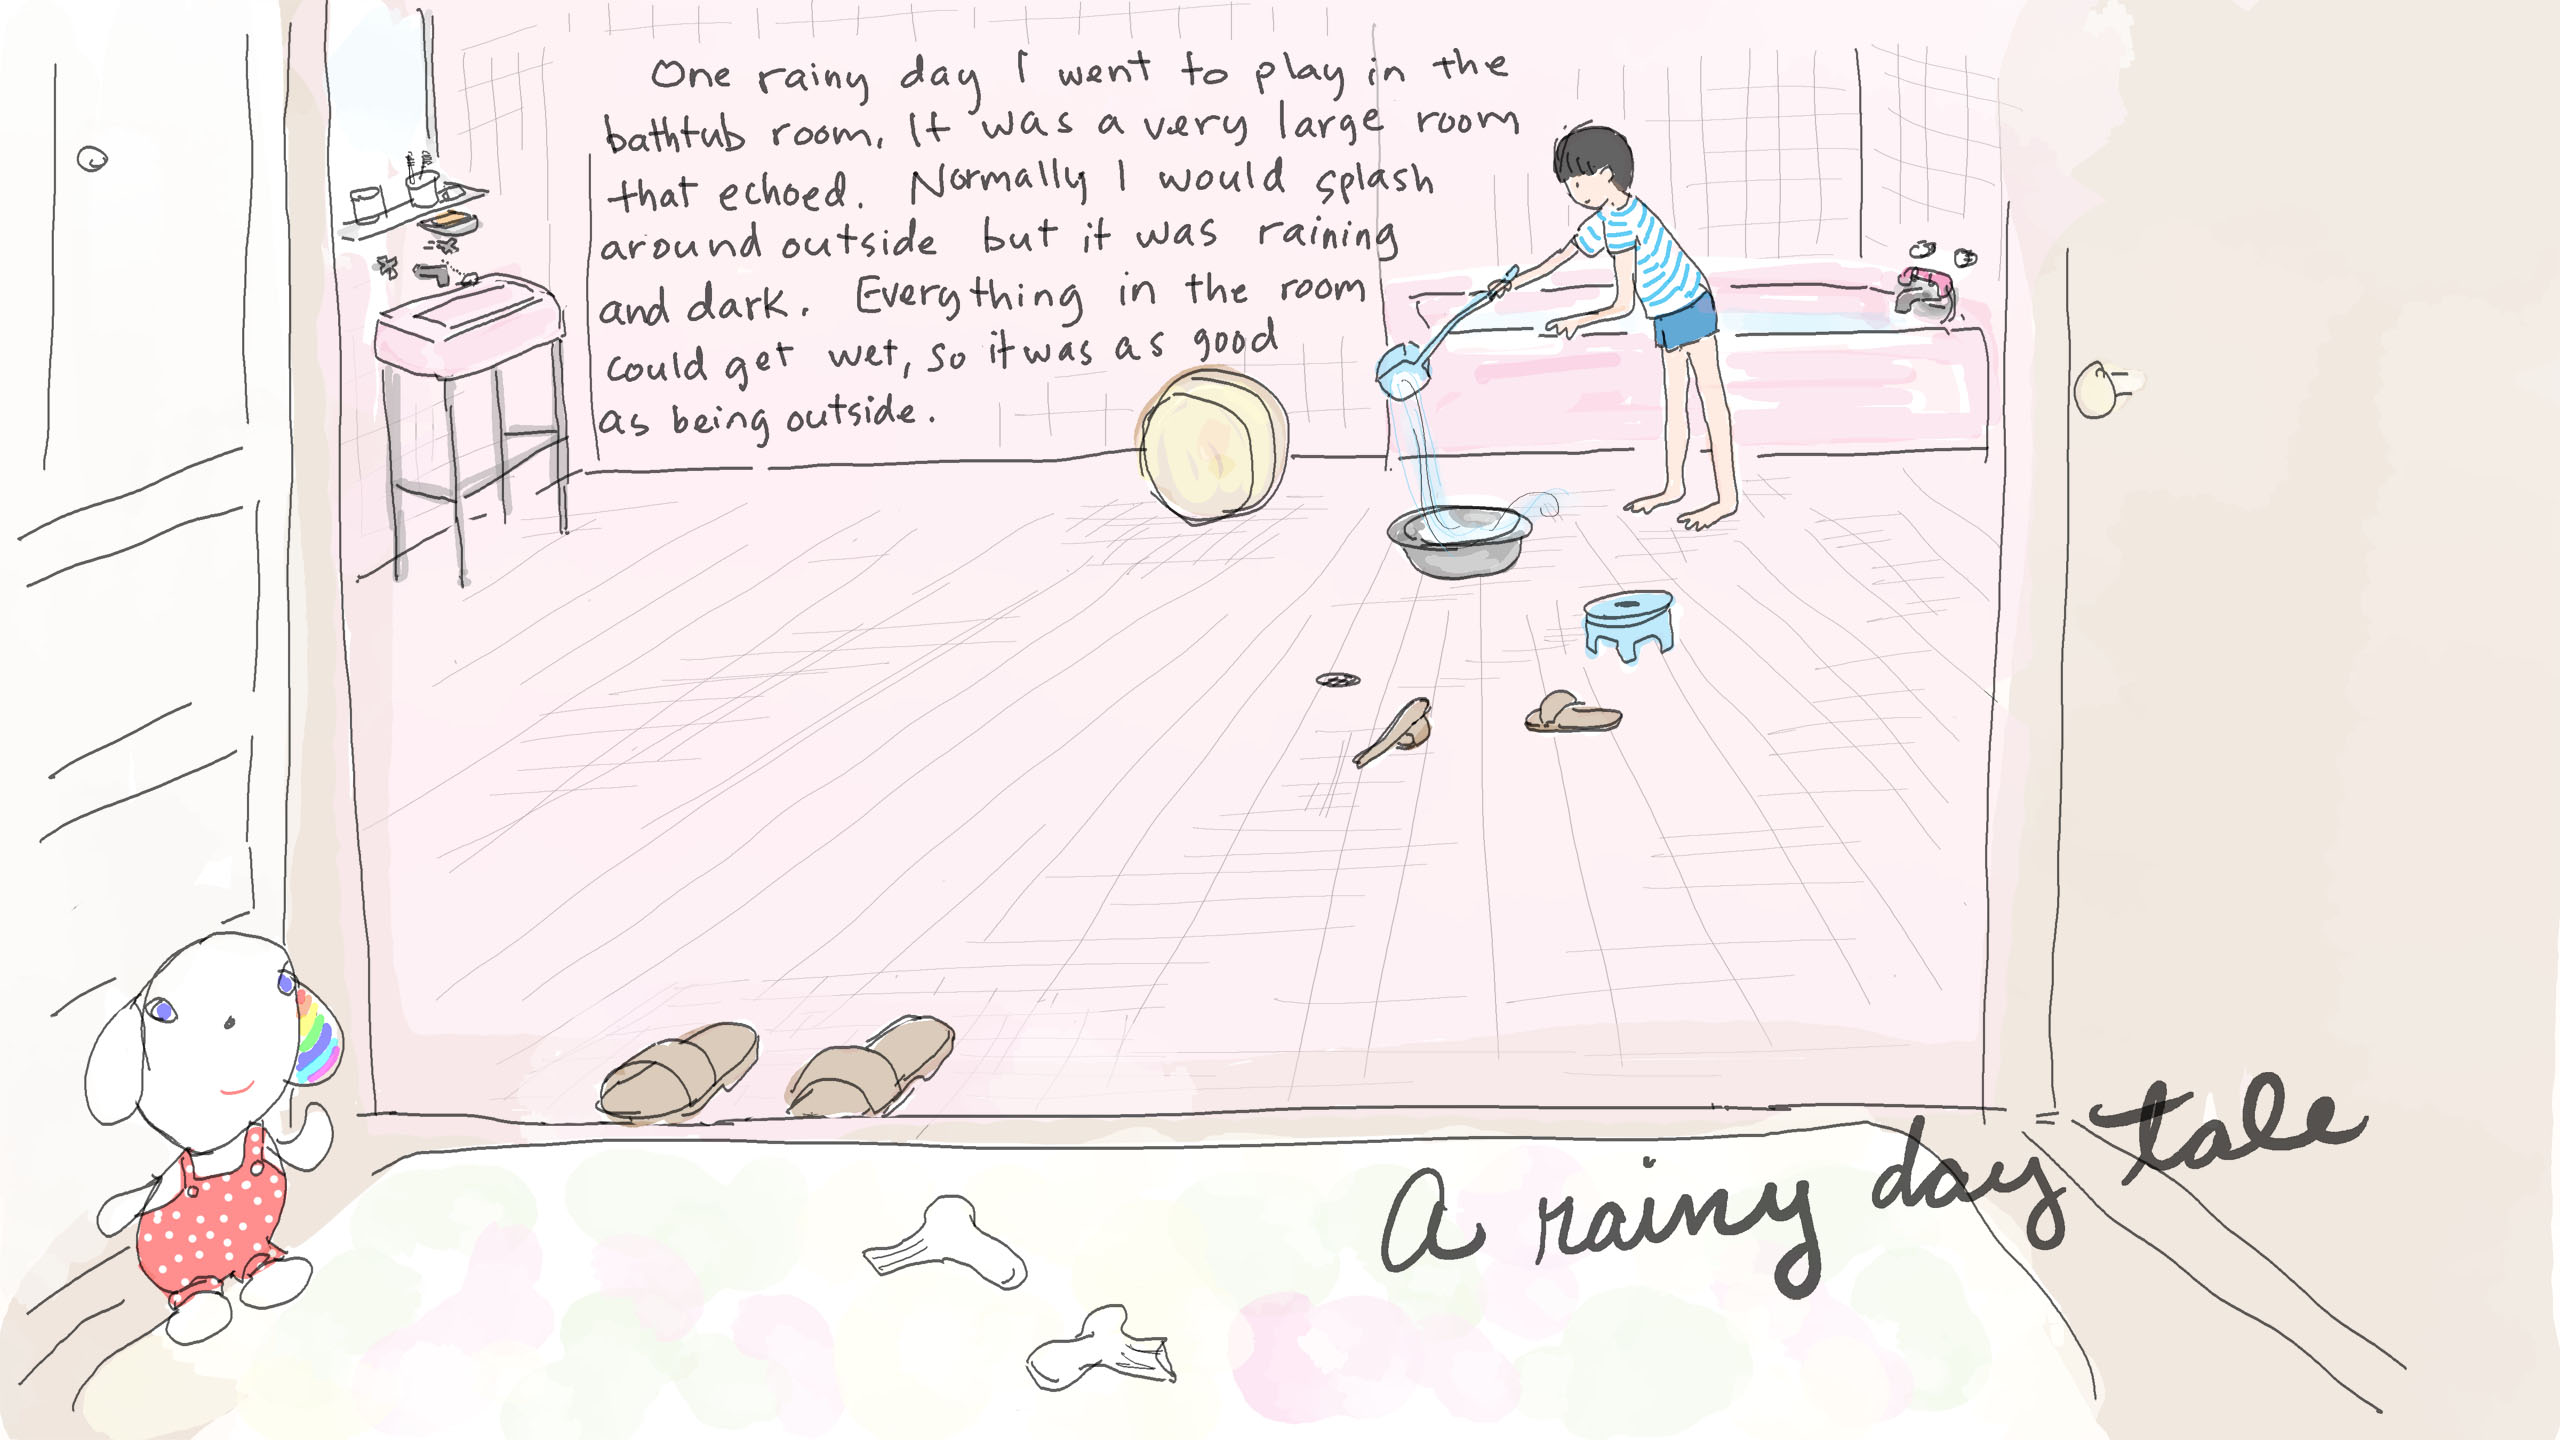 One rainy day I went to play in the
bathtub room. It was a very large room
that echoed. Normally I would splash
around outside but it was raining
and dark. Everything in the room
could get wet, so it was as good
as being outside.
A rainy day tale